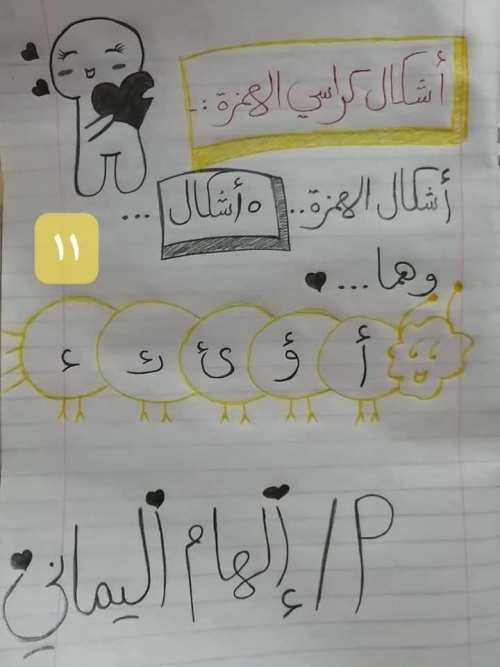 أشكال كراسي الهمزة :-
أشكال الهمزة.. ٥ أشكال ...
١١
وهما... 
أ ؤ ئ ك ء
م/ إلهام اليماني